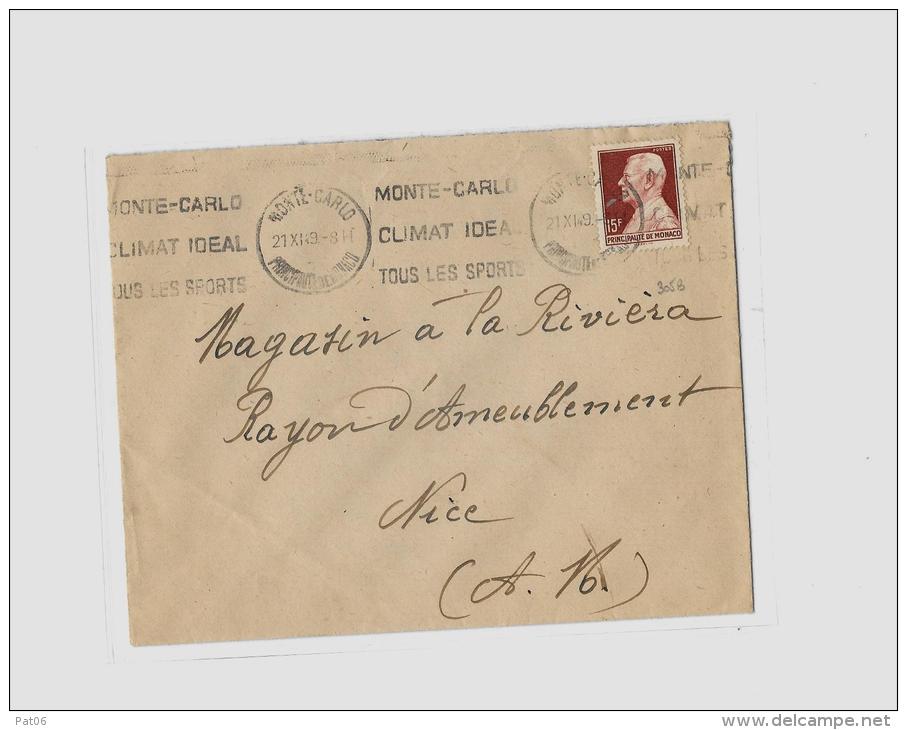 MONTE-CARLO
CLIMAT IDEAL
TOUS LES SPORTS
MONTE-CARLO
21 XI 49 - 8H
PRINCIPAUTE DE MONACO
MONTE-CARLO
CLIMAT IDEAL
TOUS LES SPORTS
21 XI 49
POSTES
15F
PRINCIPAUTÉ DE MONACO
3058
Magasin à la Rivièra
Rayon d'Ameublement
Nice
(A. M.)
Pat06
www.delcampe.net